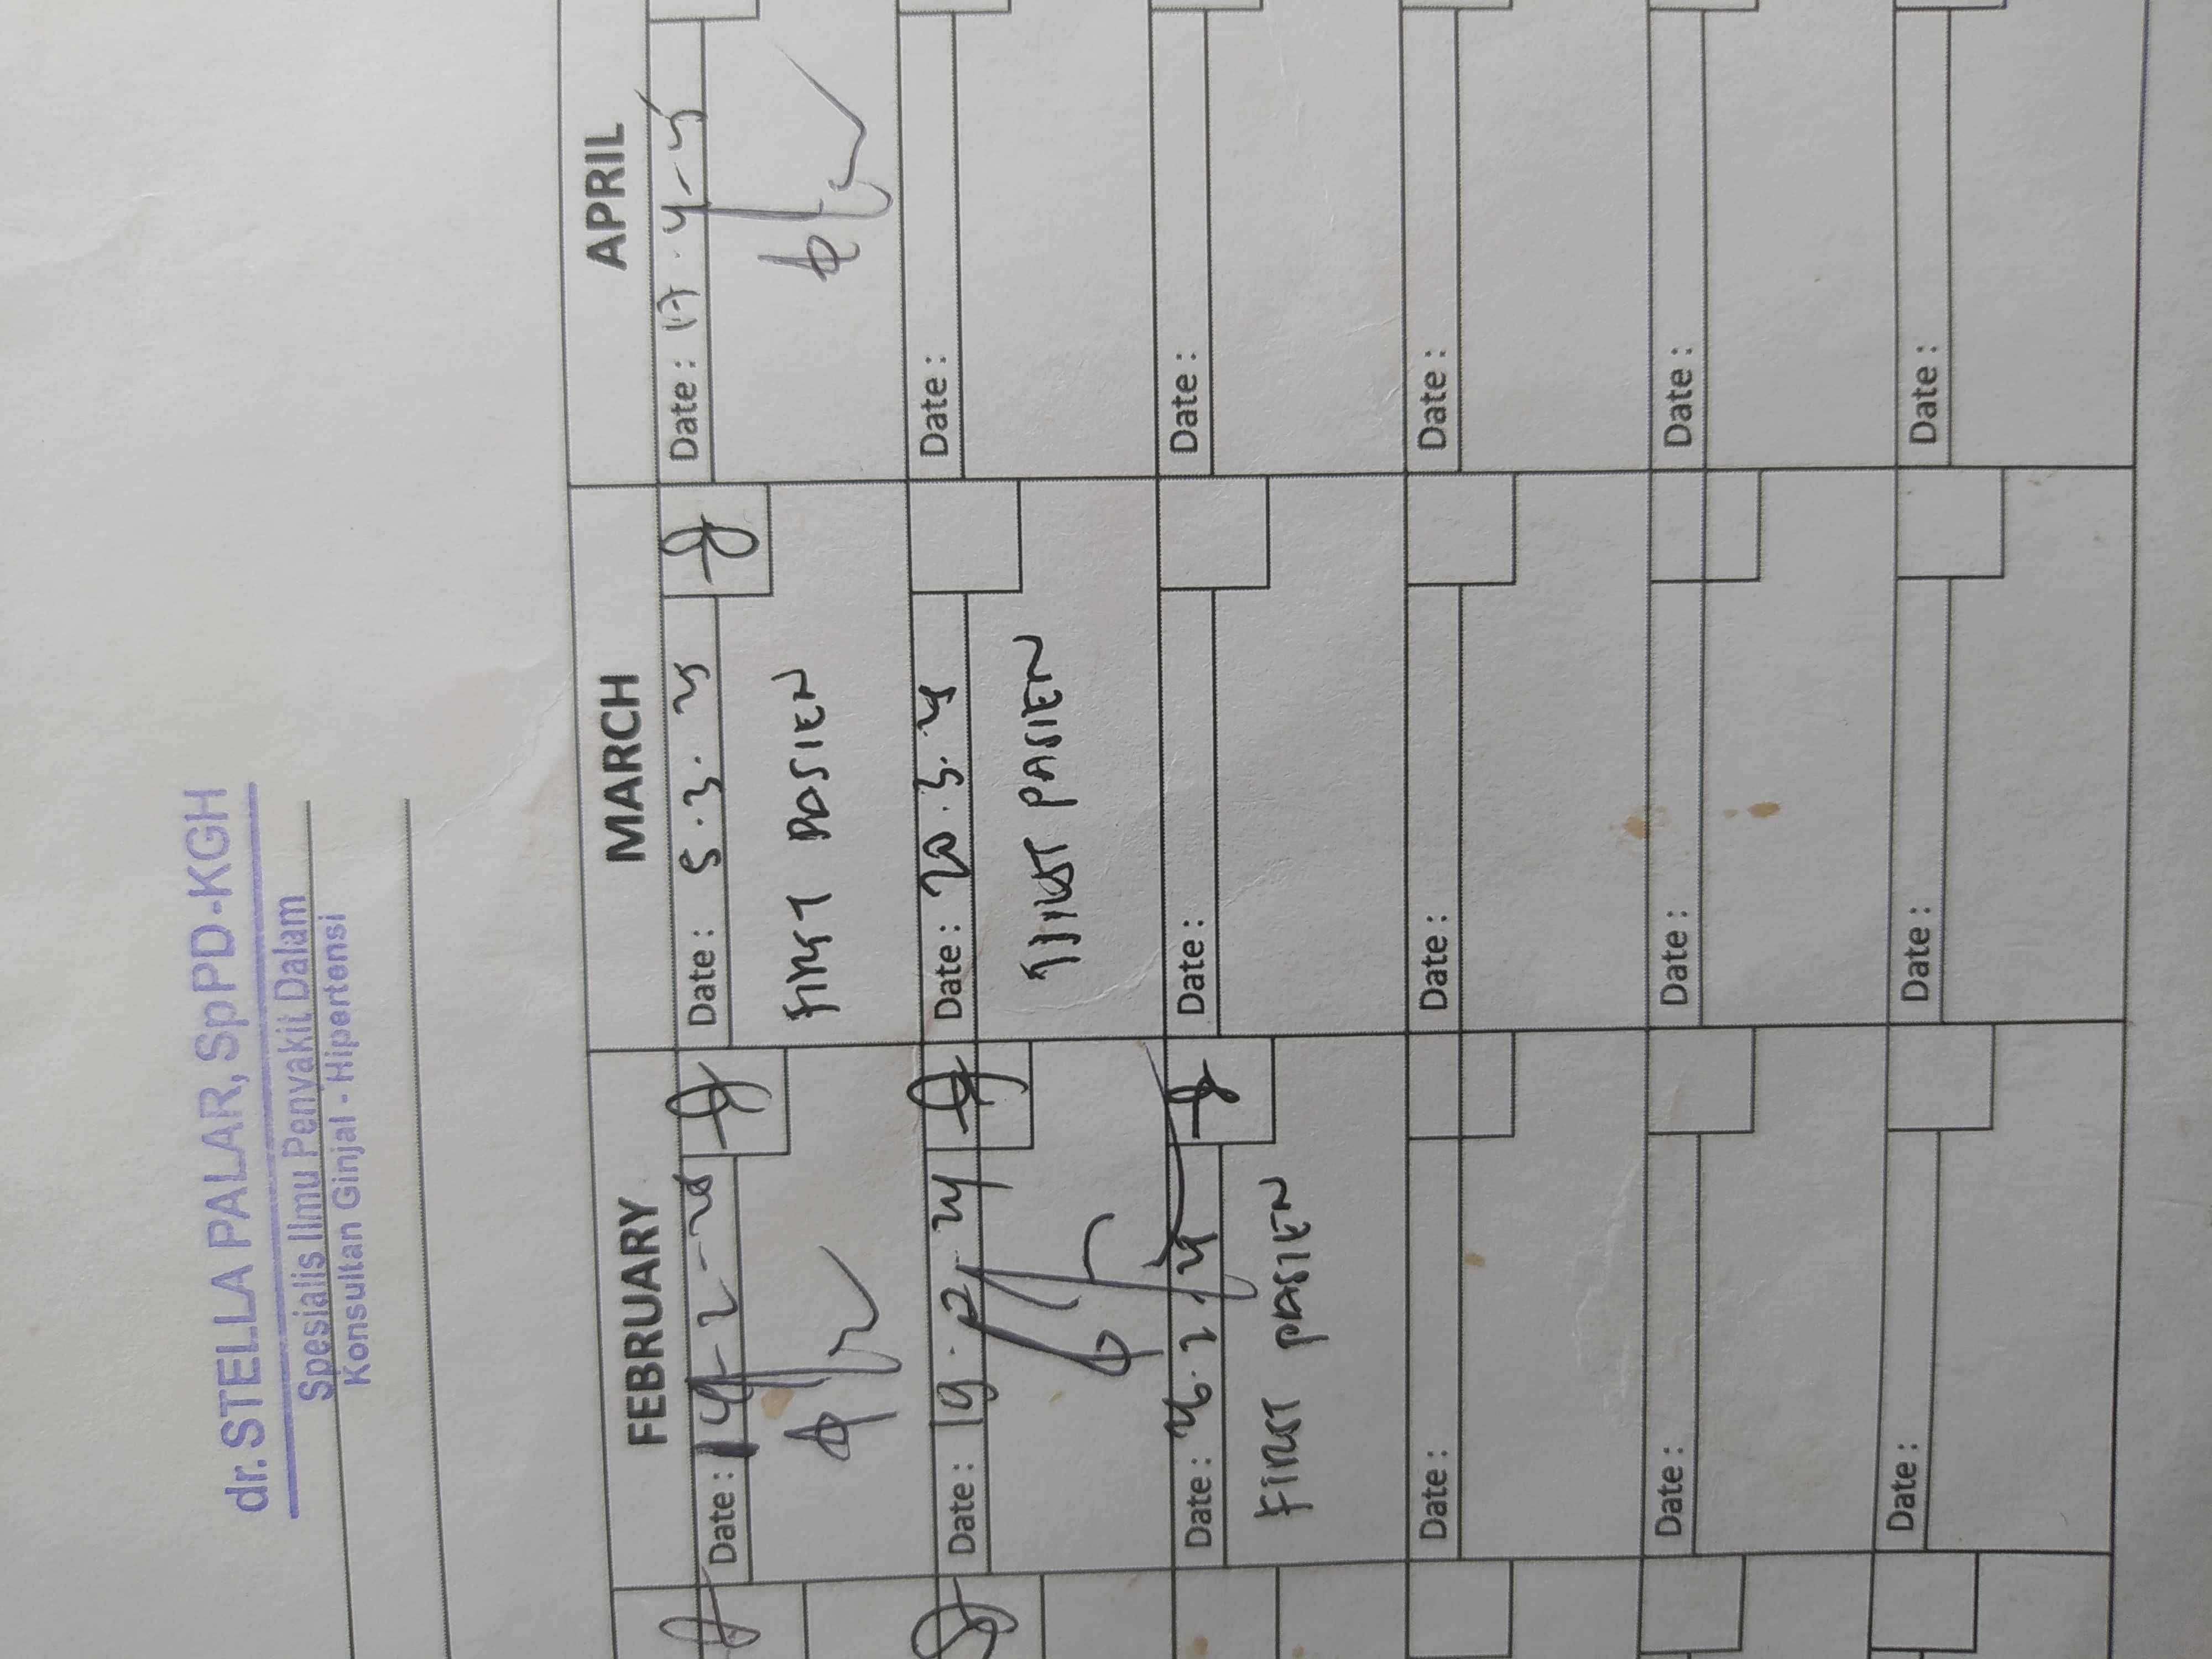 dr. STELLA PALAR, SpPD-KGH
Spesialis Ilmu Penyakit Dalam
Konsultan Ginjal - Hipertensi
FEBRUARY MARCH APRIL
Date: Date: 5.3. Date: 17.4-
FIRST PASIEN
Date: 19.2. Date: 20.3. Date:
FIRST PASIEN
Date: Date: Date:
FIRST PASIEN
Date: Date: Date:
Date: Date: Date:
Date: Date: Date: